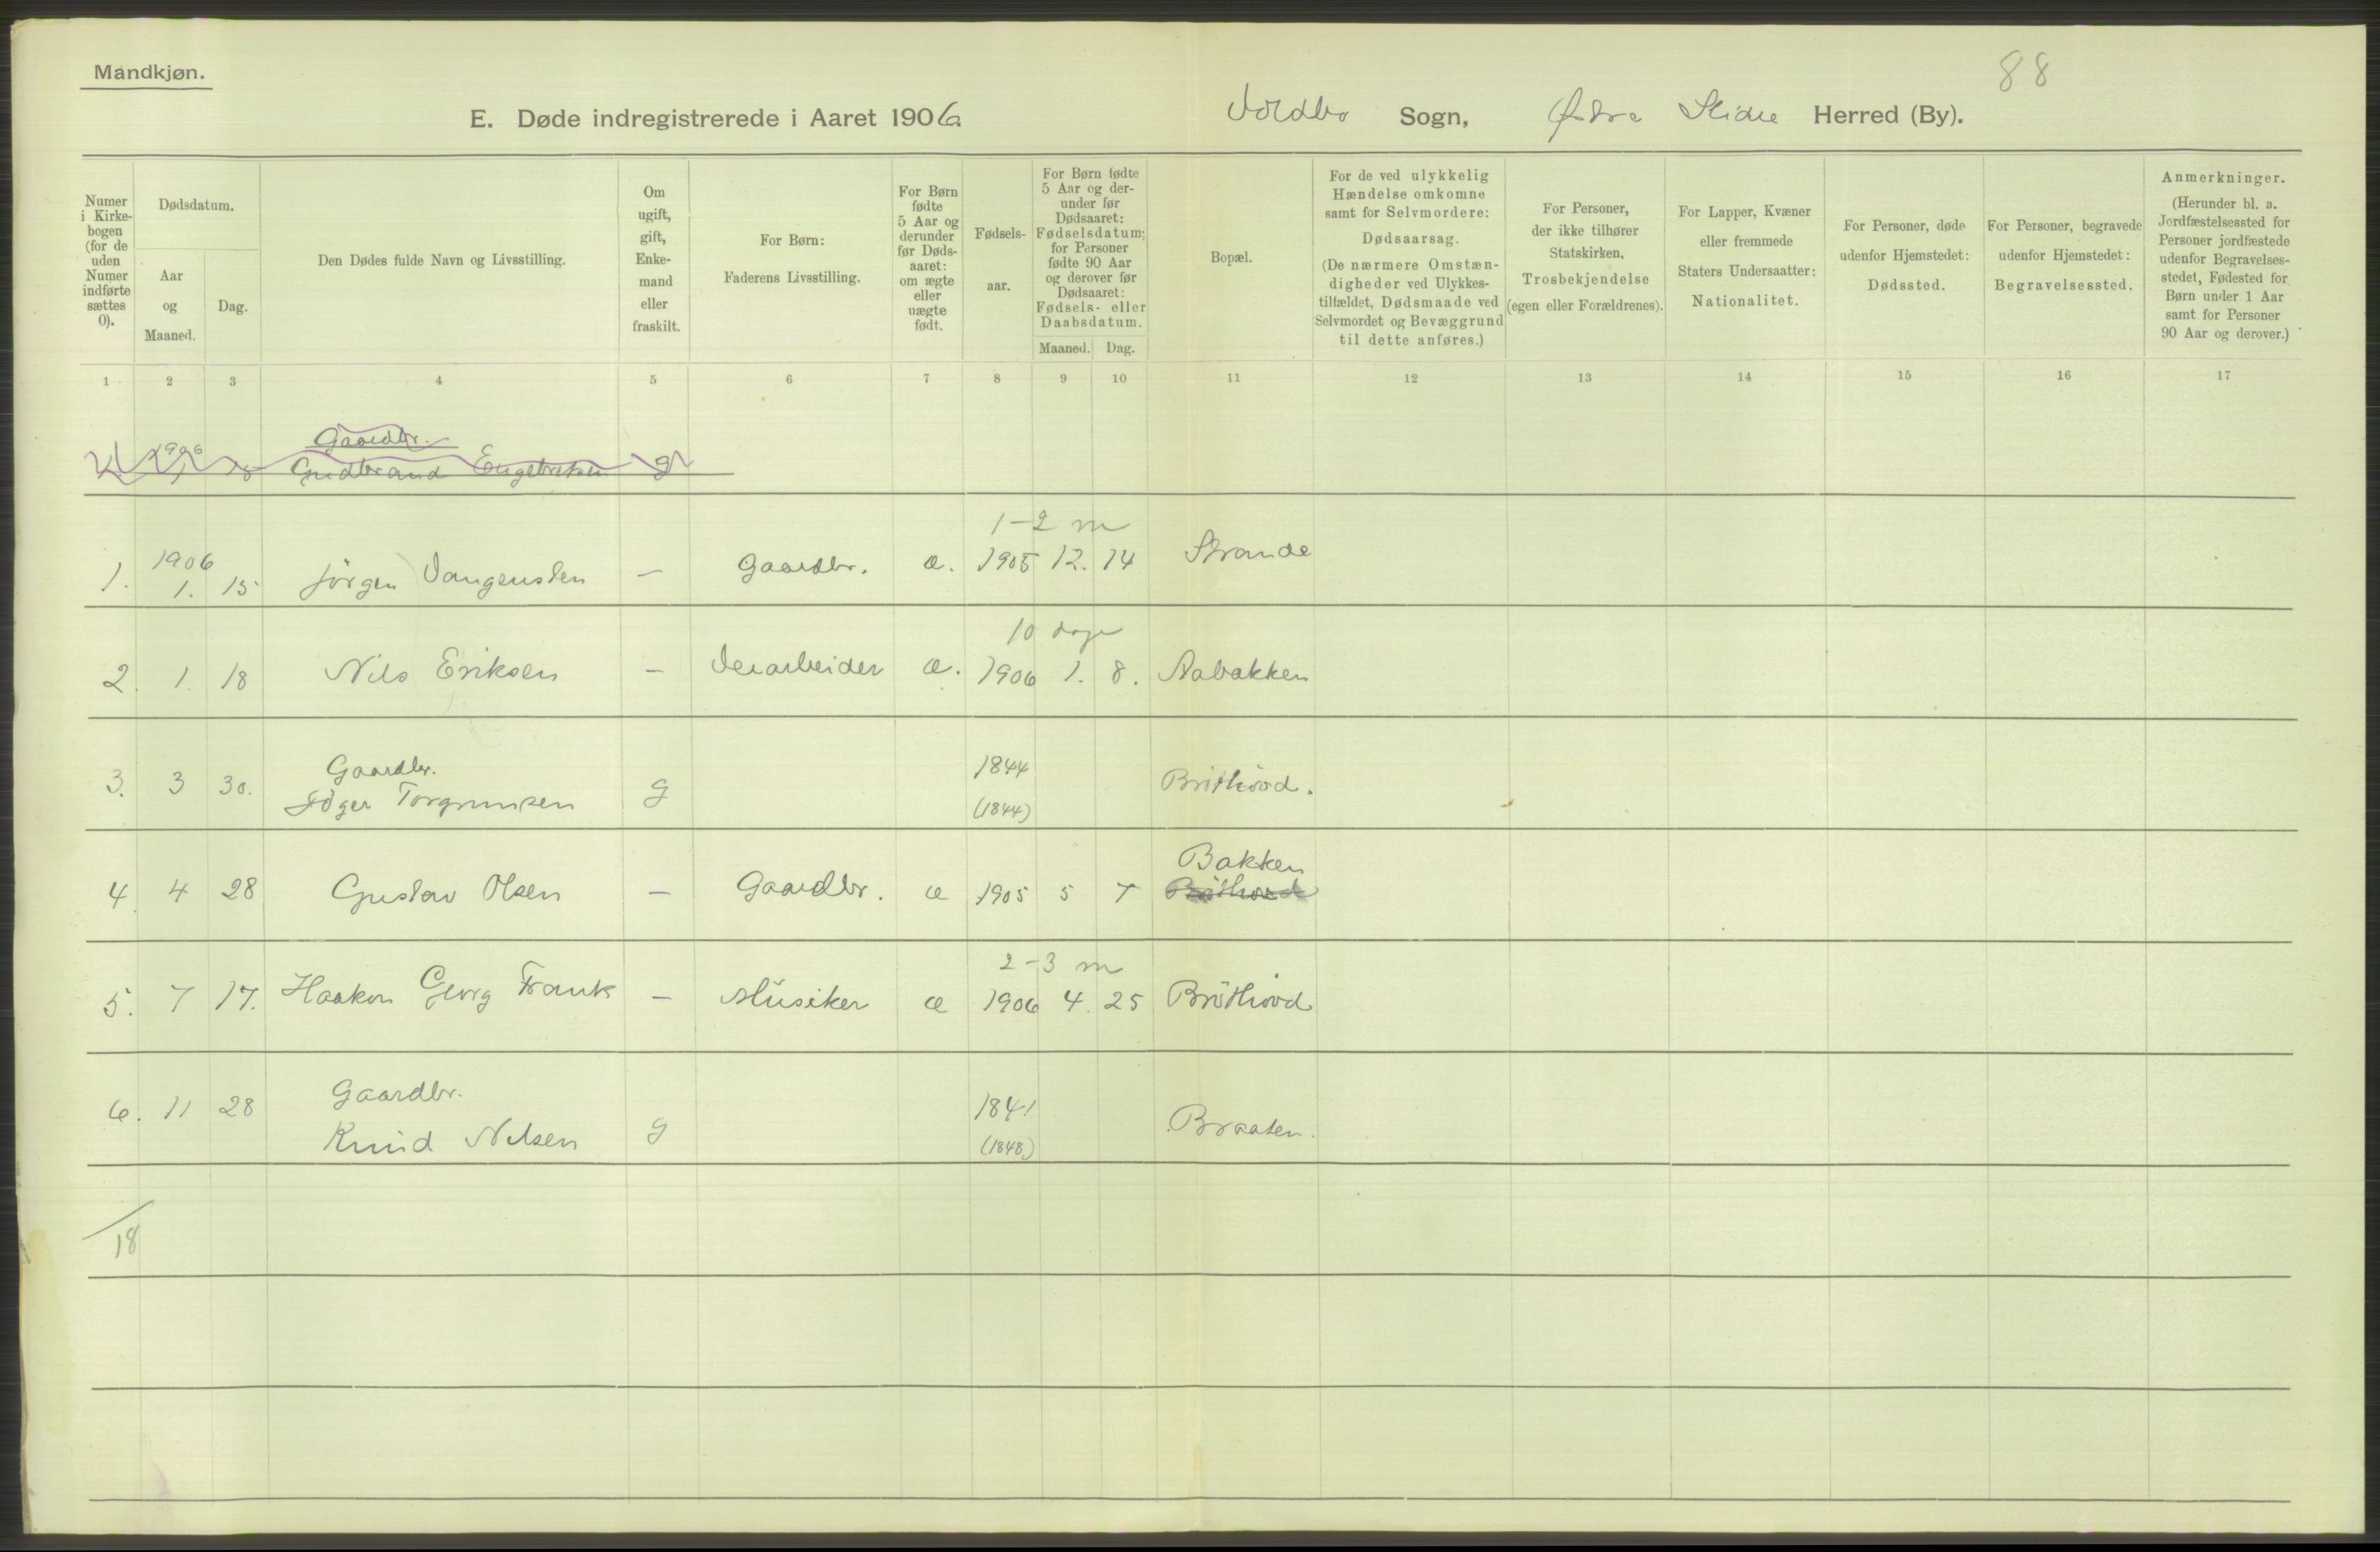 Mandkjøn.
88
E. Døde indregistrerede i Aaret 1906 Voldbo Sogn, Østre Slidre Herred (By).
Numer i Kirke-bogen (for de uden Numer indførte sættes 0).
Dødsdatum.
Aar og Maaned.
Dag.
Den Dødes fulde Navn og Livsstilling.
Om ugift, gift, Enke-mand eller fraskilt.
For Børn: Faderens Livsstilling.
For Børn fødte 5 Aar og derunder før Døds-aaret: om ægte eller uægte født.
Fødsels-aar.
For Børn fødte 5 Aar og der-under før Dødsaaret: Fødselsdatum; for Personer fødte 90 Aar og derover før Dødsaaret: Fødsels- eller Daabsdatum.
Maaned. Dag.
Bopæl.
For de ved ulykkelig Hændelse omkomne samt for Selvmordere: Dødsaarsag. (De nærmere Omstæn-digheder ved Ulykkes-tilfældet, Dødsmaade ved Selvmordet og Bevæggrund til dette anføres.)
For Personer, der ikke tilhører Statskirken, Trosbekjendelse (egen eller Forældrenes).
For Lapper, Kvæner eller fremmede Staters Undersaatter: Nationalitet.
For Personer, døde udenfor Hjemstedet: Dødssted.
For Personer, begravede udenfor Hjemstedet: Begravelsessted.
Anmerkninger. (Herunder bl. a. Jordfæstelsessted for Personer jordfæstede udenfor Begravelses-stedet, Fødested for Børn under 1 Aar samt for Personer 90 Aar og derover.)
1 2 3 4 5 6 7 8 9 10 11 12 13 14 15 16 17
Gaardbr.
1906 Gudbrand Engebretsen g
1-2 m
1906
1. 1. 15 Jörgen Vangensten — Gaardbr. æ. 1905 12. 14 Strande
10 dage
2. 1. 18 Nils Eriksen — Veiarbeider æ. 1906 1. 8. Aabakken
Gaardbr. 1844
3. 3 30. Torgrimsen g (1844) Bröthovd.
Bakken
4. 4 28 Gustav Olsen — Gaardbr. æ 1905 5 7 Bröthovd
2-3 m
5. 7 17. Haakon Georg Frank — Musiker æ 1906 4. 25 Bröthovd
Gaardbr. 1841
6. 11 28 Knud Nilsen g (1848) Braaten.
18